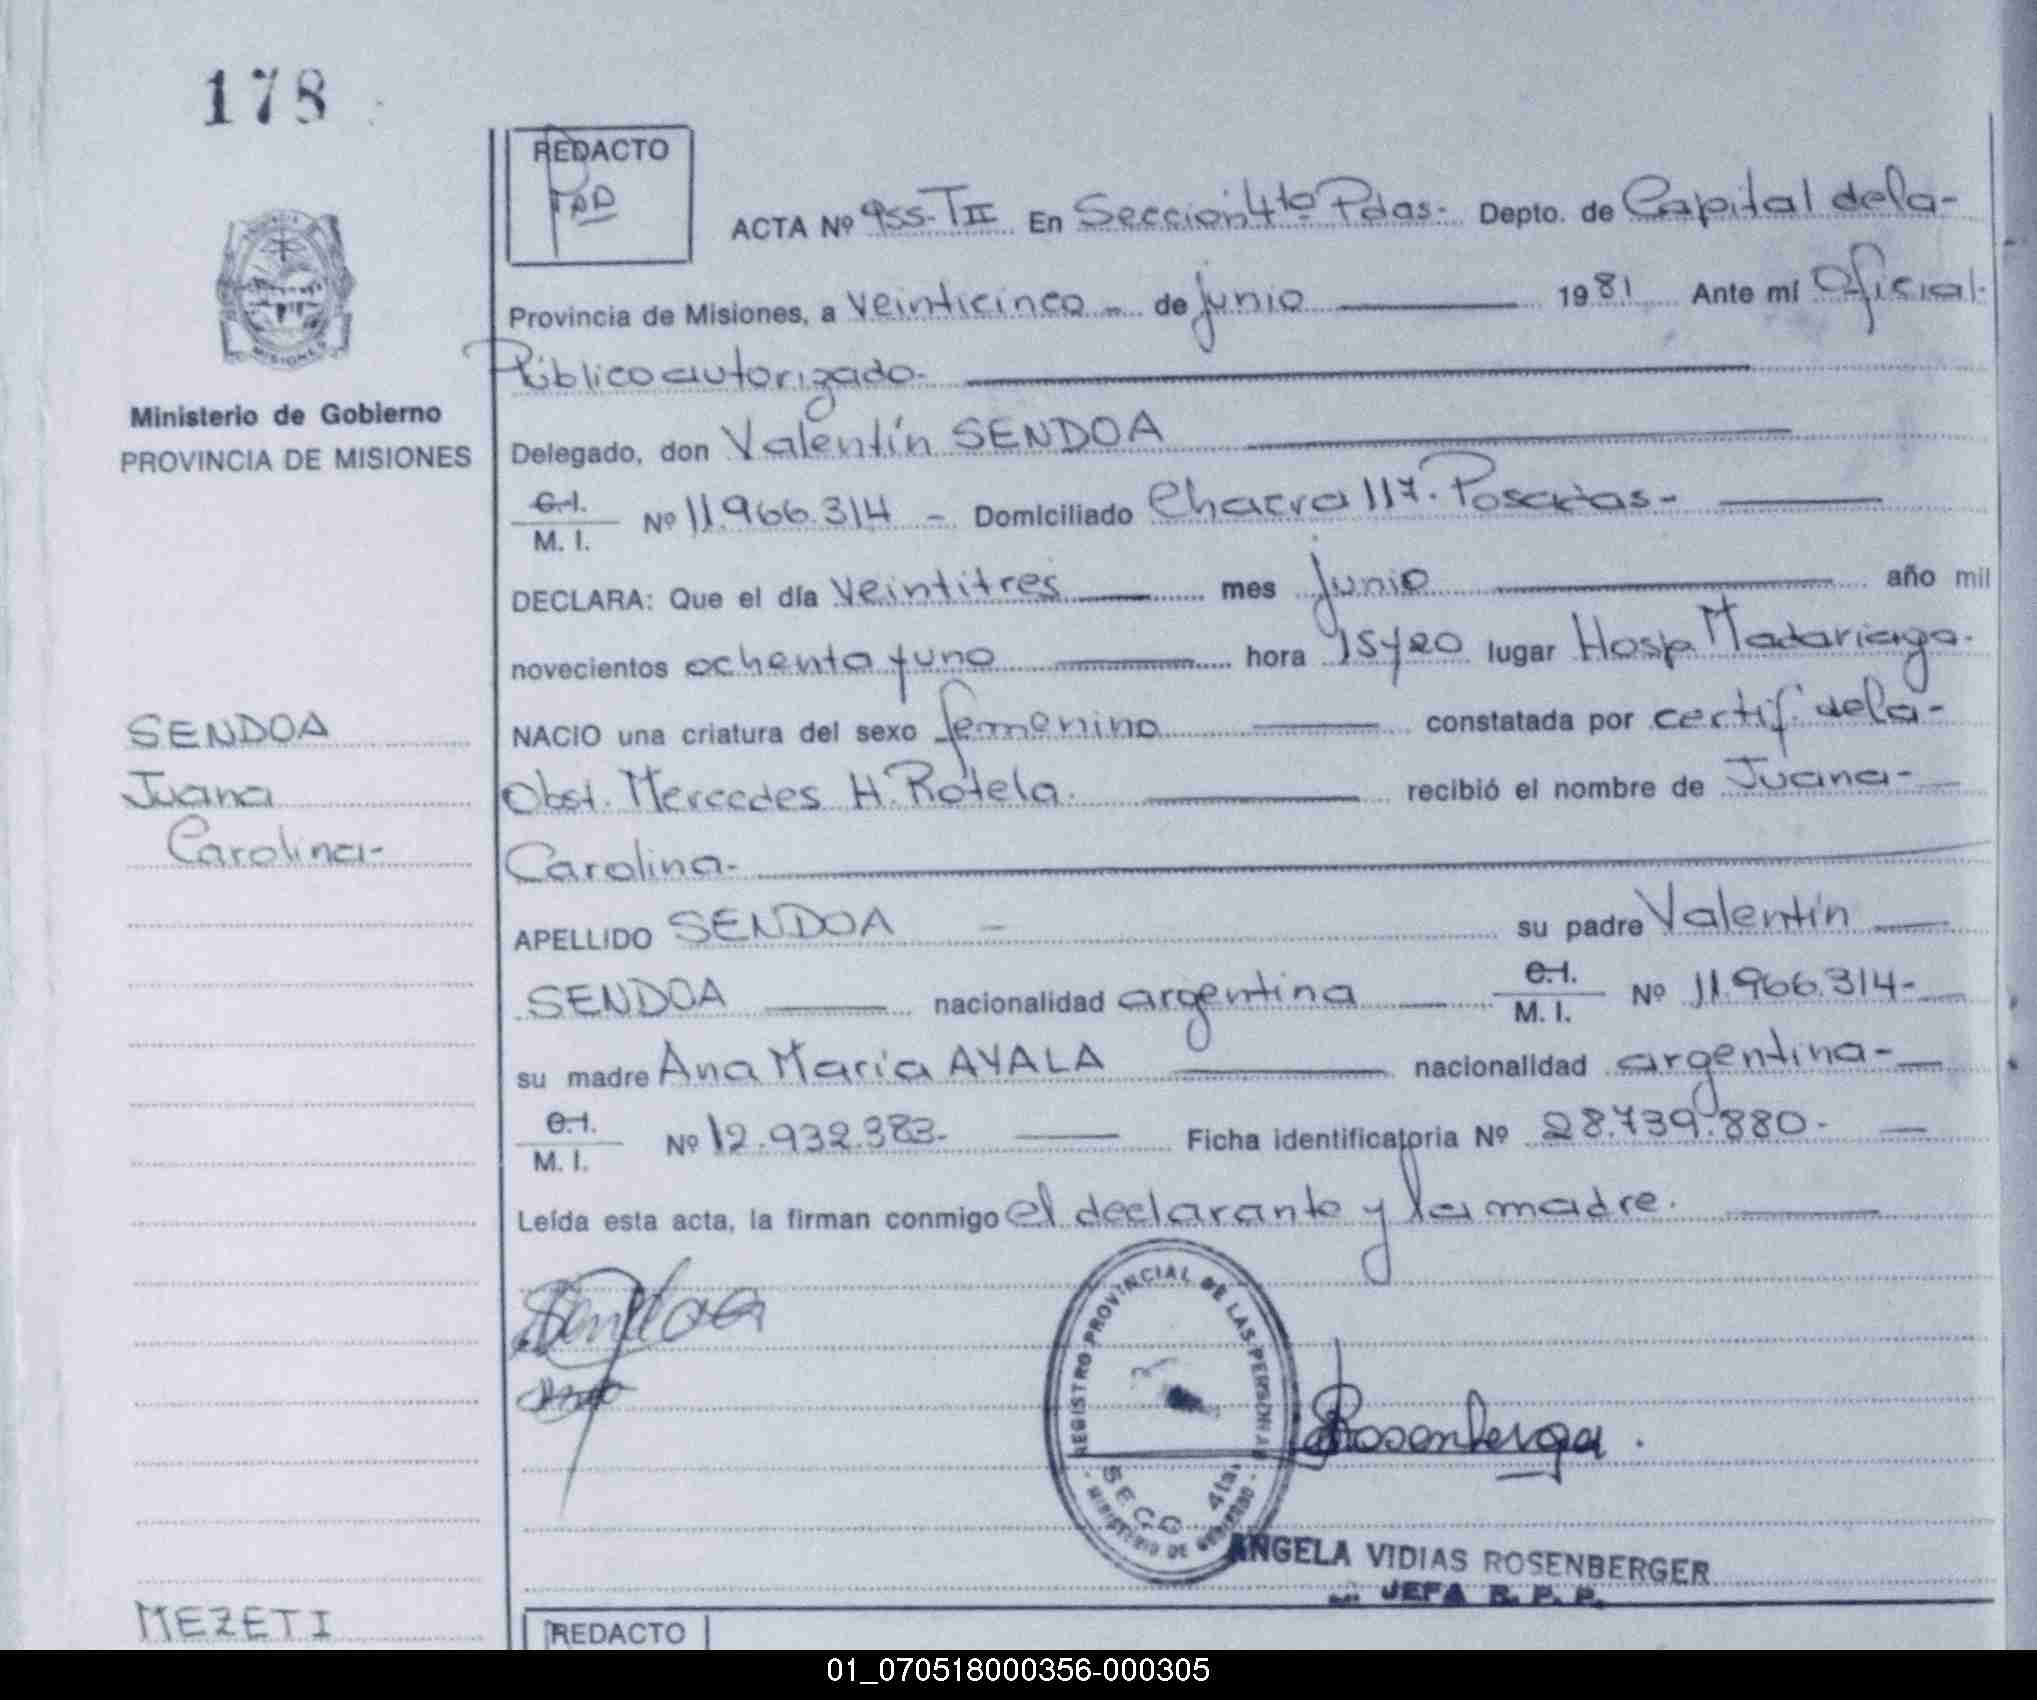 178
REDACTO
ACTA Nº 955-TII En Sección 4ta Pdas- Depto. de Capital de la-
Provincia de Misiones, a veinticinco - de junio 1981 Ante mí Oficial
Público autorizado.
Delegado, don Valentín SENDOA
C.I. M. I. Nº 11.966.314 - Domiciliado Chacra 117. Posadas-
DECLARA: Que el día veintitres mes junio año mil
novecientos ochenta y uno hora 15y20 lugar Hosp. Madariaga.
NACIO una criatura del sexo femenino constatada por certif. de la-
Obst. Mercedes H. Rotela. recibió el nombre de Juana-
Carolina-
APELLIDO SENDOA - su padre Valentín
SENDOA nacionalidad argentina C.I. M. I. Nº 11.966.314-
su madre Ana María AYALA nacionalidad argentina-
C.I. M. I. Nº 12.932.383- Ficha identificatoria Nº 28.739.880-
Leída esta acta, la firman conmigo el declarante y la madre.
MISIONES
Ministerio de Gobierno
PROVINCIA DE MISIONES
SENDOA
Juana
Carolina-
Sendoa
REGISTRO PROVINCIAL DE LAS PERSONAS
SECC 4ta.
MINISTERIO DE GOBIERNO
Rosenberga
ANGELA VIDIAS ROSENBERGER
JEFA R. P. P.
MEZETI
REDACTO
01_070518000356-000305